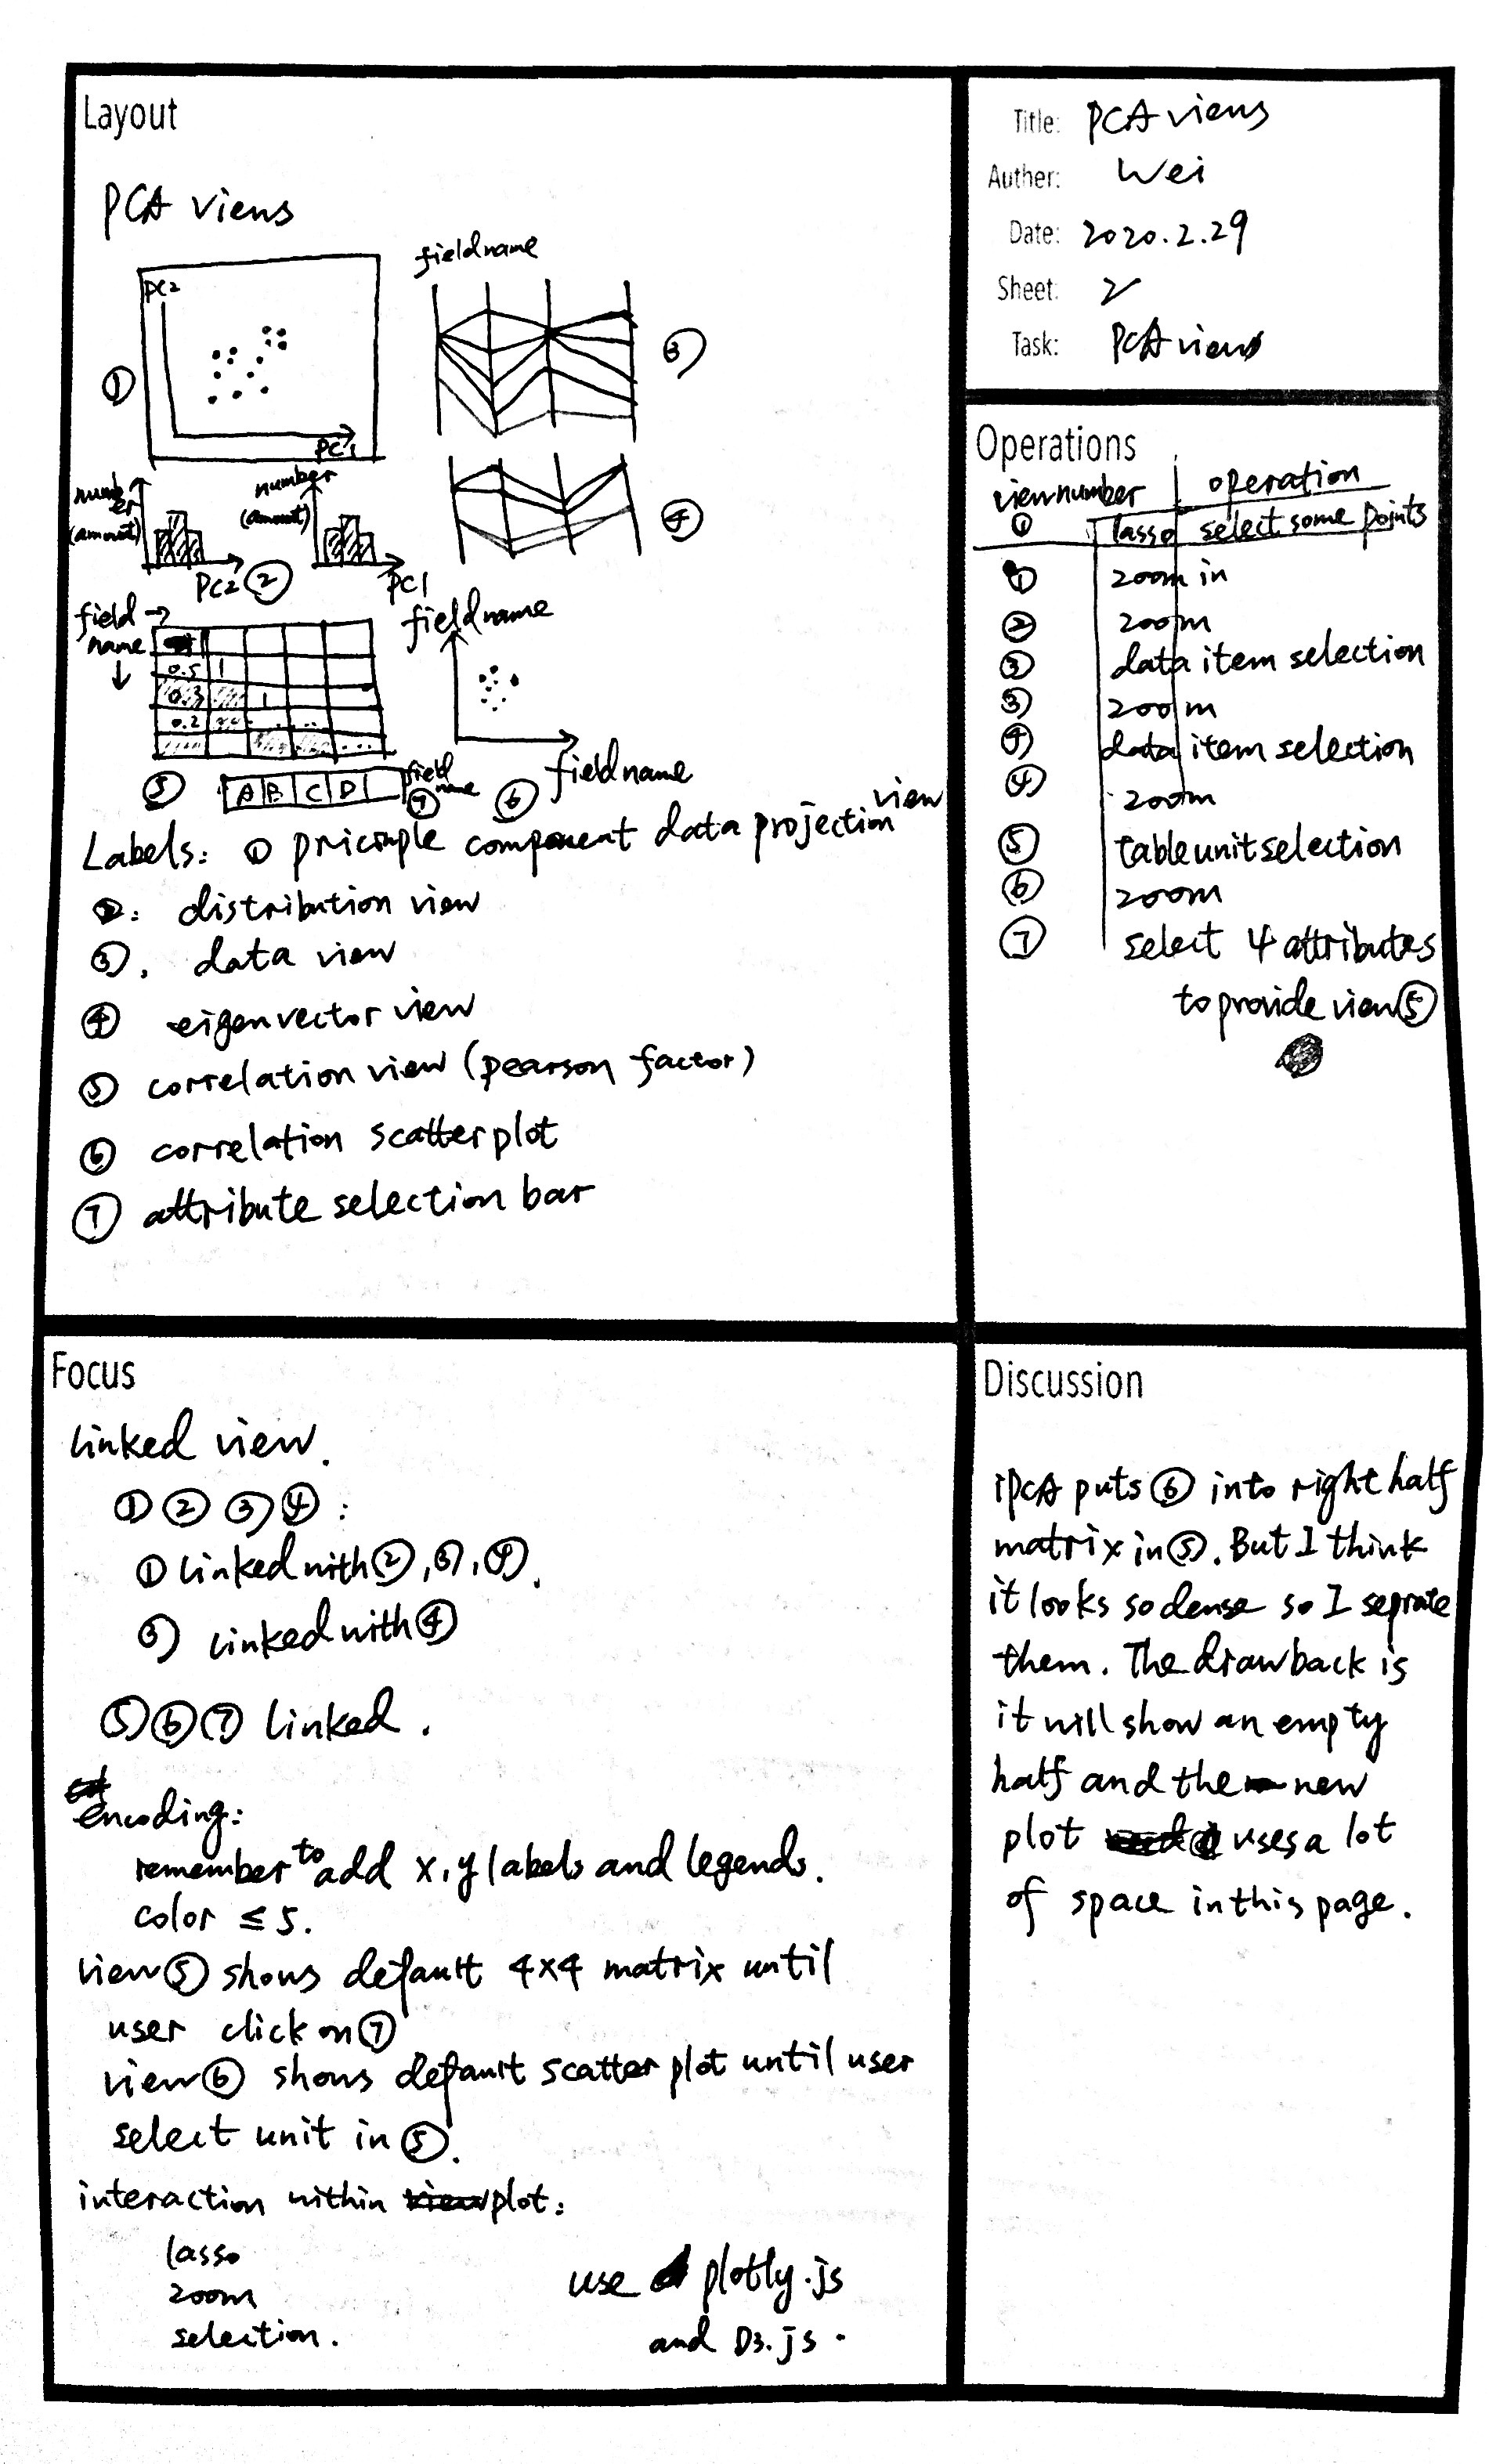 Layout
PCA views
fieldname
PC2
①
③
PC1
numb
er
(amount)
number
(amount)
④
PC2 ②
PC1
field →
name
↓
fieldname
0.5 1
0.3 1
0.2
⑤
A B C D
field
name
⑦
⑥
fieldname
Labels: ① pricimple component data projection view
②: distribution view
③. data view
④ eigenvector view
⑤ correlation view (pearson factor)
⑥ correlation scatterplot
⑦ attribute selection bar
Title: PCA views
Auther: Wei
Date: 2020.2.29
Sheet: 2
Task: PCA views
Operations
viewnumber operation
① lasso select some points
① zoom in
② zoom
③ data item selection
③ zoom
④ data item selection
④ zoom
⑤ table unit selection
⑥ zoom
⑦ select 4 attributes
to provide view⑤
Focus
linked view.
① ② ③ ④ :
① linked with ②, ③, ④.
③ linked with ④
⑤ ⑥ ⑦ linked.
encoding:
remember to add x, y labels and legends.
color ≤ 5.
view⑤ shows default 4×4 matrix until
user click on ⑦
view⑥ shows default scatter plot until user
select unit in ⑤.
interaction within plot:
lasso
zoom
selection.
use plotly.js
and D3.js.
Discussion
iPCA puts ⑥ into right half
matrix in ⑤. But I think
it looks so dense so I seprate
them. The drawback is
it will show an empty
half and the new
plot uses a lot
of space in this page.